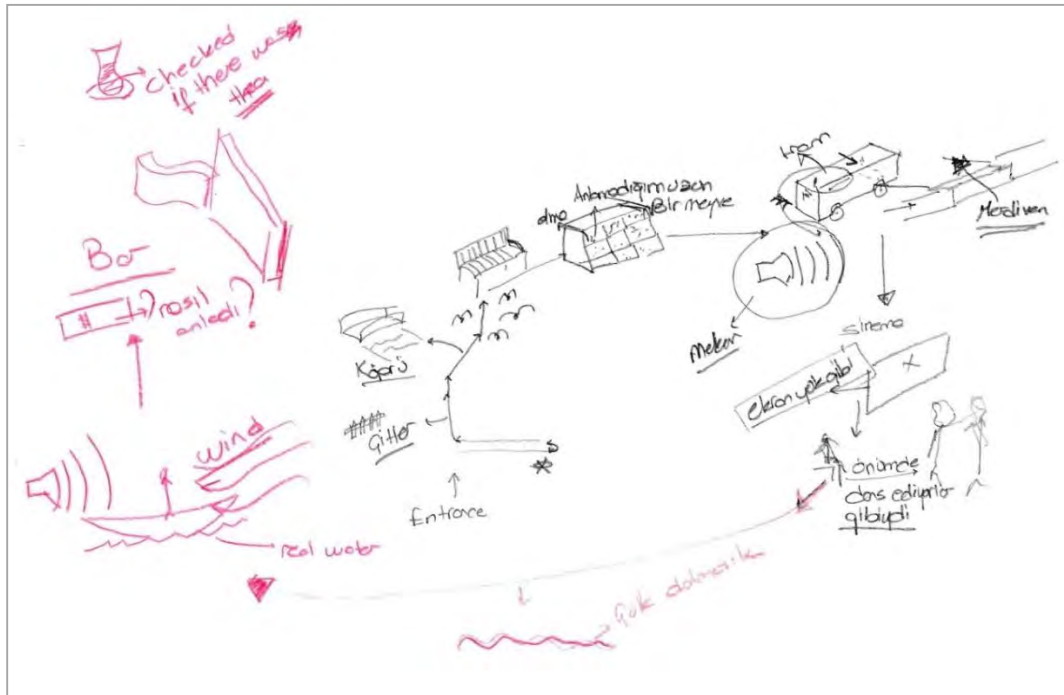 checked
if there was
Bar
nasıl
anladı?
wind
real water
Entrance
Gitter
Köprü
elma
Anlamadığım uzun
Bir meyve
tram
Merdiven
Mekan
sinema
ekran yok gibi
önümde
dans ediyorlar
gibiydi
Çok dolandık